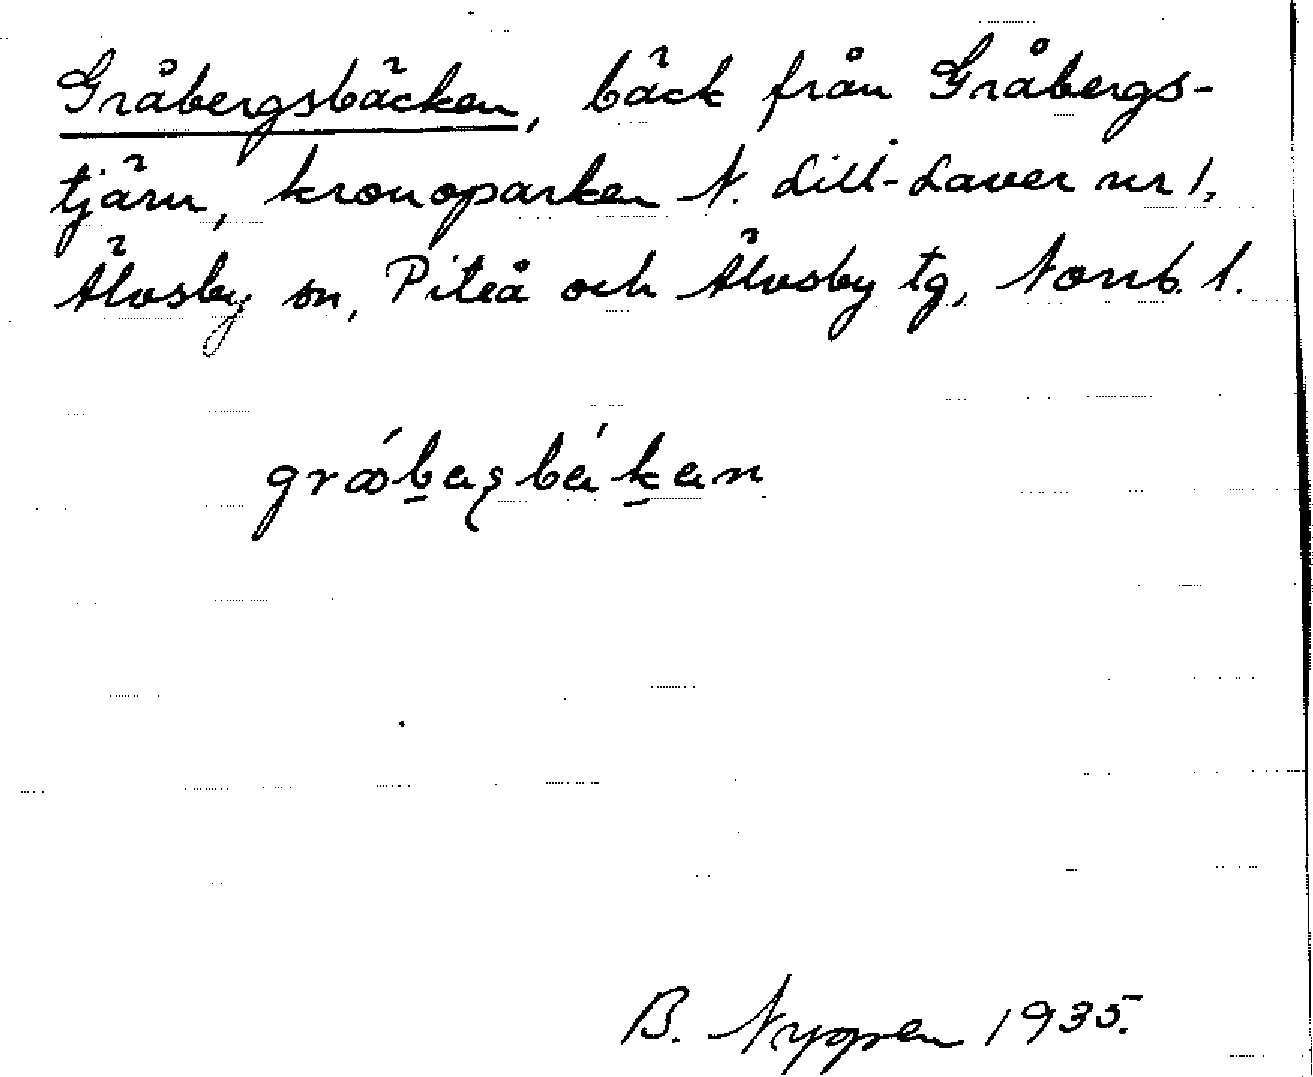 Gråbergsbäcken, bäck från Gråbergs-
tjärn, kronoparken N. Lill-Laver nr 1,
Älvsby sn, Piteå och Älvsby tg, Norrb. l.
B. Nygren 1935.